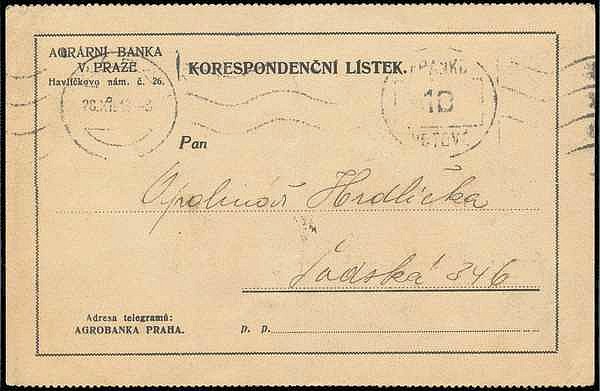 AGRÁRNÍ BANKA
V PRAZE
Havlíčkovo nám. č. 26.
KORESPONDENČNÍ LÍSTEK.
10
Pan
Apolinář Hrdlička
Sadská 346
Adresa telegramů:
AGROBANKA PRAHA.
p. p.